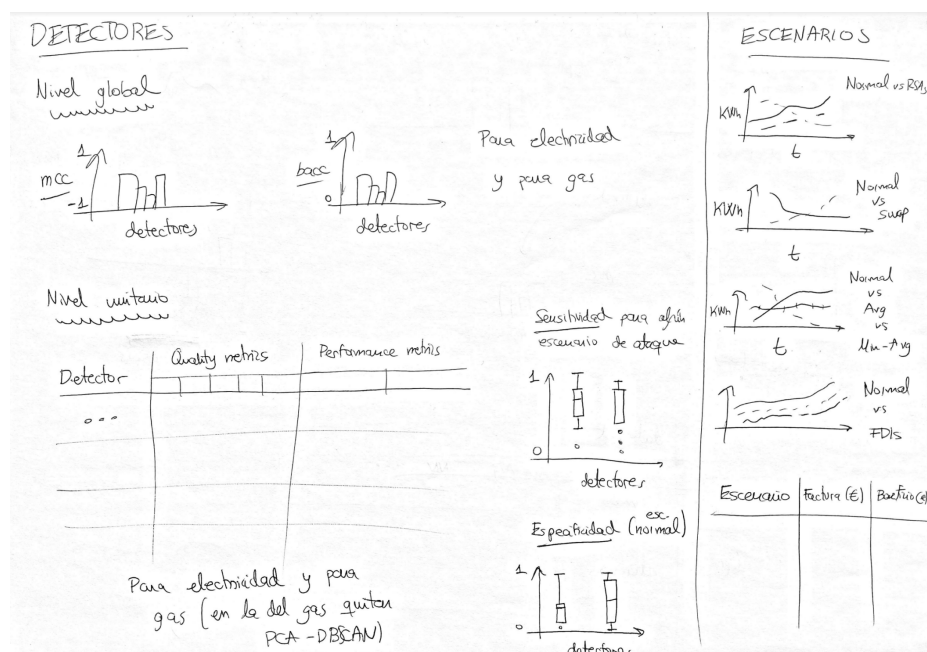 DETECTORES
Nivel global
1
mcc
-1
detectores
1
bacc
0
detectores
Para electricidad
y para gas
Nivel unitario
Detector
Quality metrics
Performance metrics
Para electricidad y para
gas (en la del gas quitar
PCA-DBSCAN)
Sensitividad para
escenario de ataque
1
0
detectores
Especificidad (esc. normal)
1
0
detectores
ESCENARIOS
Normal vs RSAs
KWh
t
Normal
vs
Swap
KWh
t
Normal
vs
Avg
vs
Min-Avg
KWh
t
Normal
vs
FDIs
Escenario
Factura (€)
Beneficio (€)